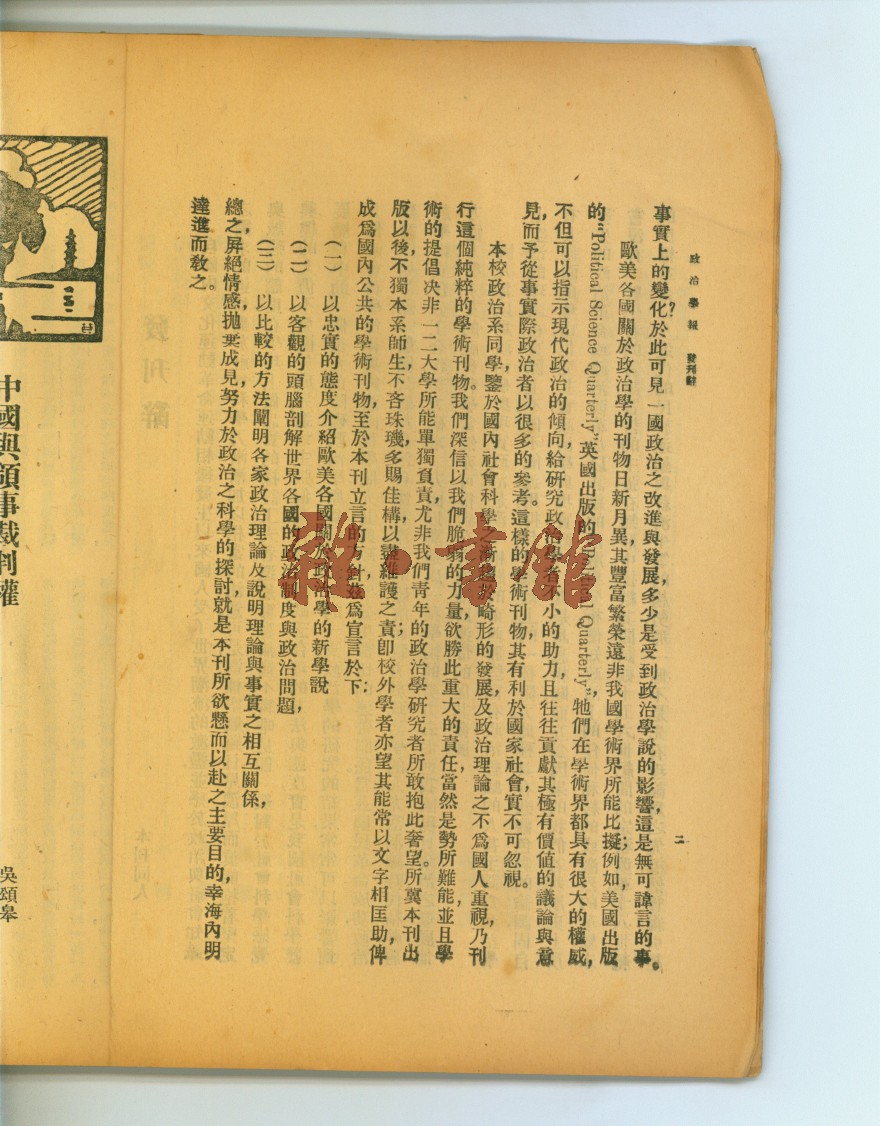 政治學報 發刊辭
二
事實上的變化?於此可見一國政治之改進與發展,多少是受到政治學說的影響,這是無可諱言的事。
歐美各國關於政治學的刊物日新月異,其豐富繁榮遠非我國學術界所能比擬;例如,美國出版
的“Political Science Quarterly”英國出版的“Political Quarterly”,牠們在學術界都具有很大的權威,
不但可以指示現代政治的傾向,給研究政治學者不小的助力,且往往貢獻其極有價値的議論與意
見,而予從事實際政治者以很多的參考。這樣的學術刊物,其有利於國家社會,實不可忽視。
本校政治系同學,鑒於國內社會科學之漸趨於畸形的發展,及政治理論之不爲國人重視,乃刊
行這個純粹的學術刊物。我們深信以我們脆弱的力量欲勝此重大的責任,當然是勢所難能,並且學
術的提倡決非一二大學所能單獨負責,尤非我們靑年的政治學研究者所敢抱此奢望。所冀本刊出
版以後,不獨本系師生,不吝珠璣,多賜佳構,以盡維護之責;卽校外學者亦望其能常以文字相匡助,俾
成爲國內公共的學術刊物,至於本刊立言的方針,茲爲宣言於下:
(一) 以忠實的態度介紹歐美各國關於政治學的新學說
(二) 以客觀的頭腦剖解世界各國的政治制度與政治問題,
(三) 以比較的方法闡明各家政治理論及說明理論與事實之相互關係,
總之,屏絕情感,拋棄成見,努力於政治之科學的探討,就是本刊所欲懸而以赴之主要目的,幸海內明
達進而敎之。
中國與領事裁判權
吳頌皋
雅一書館